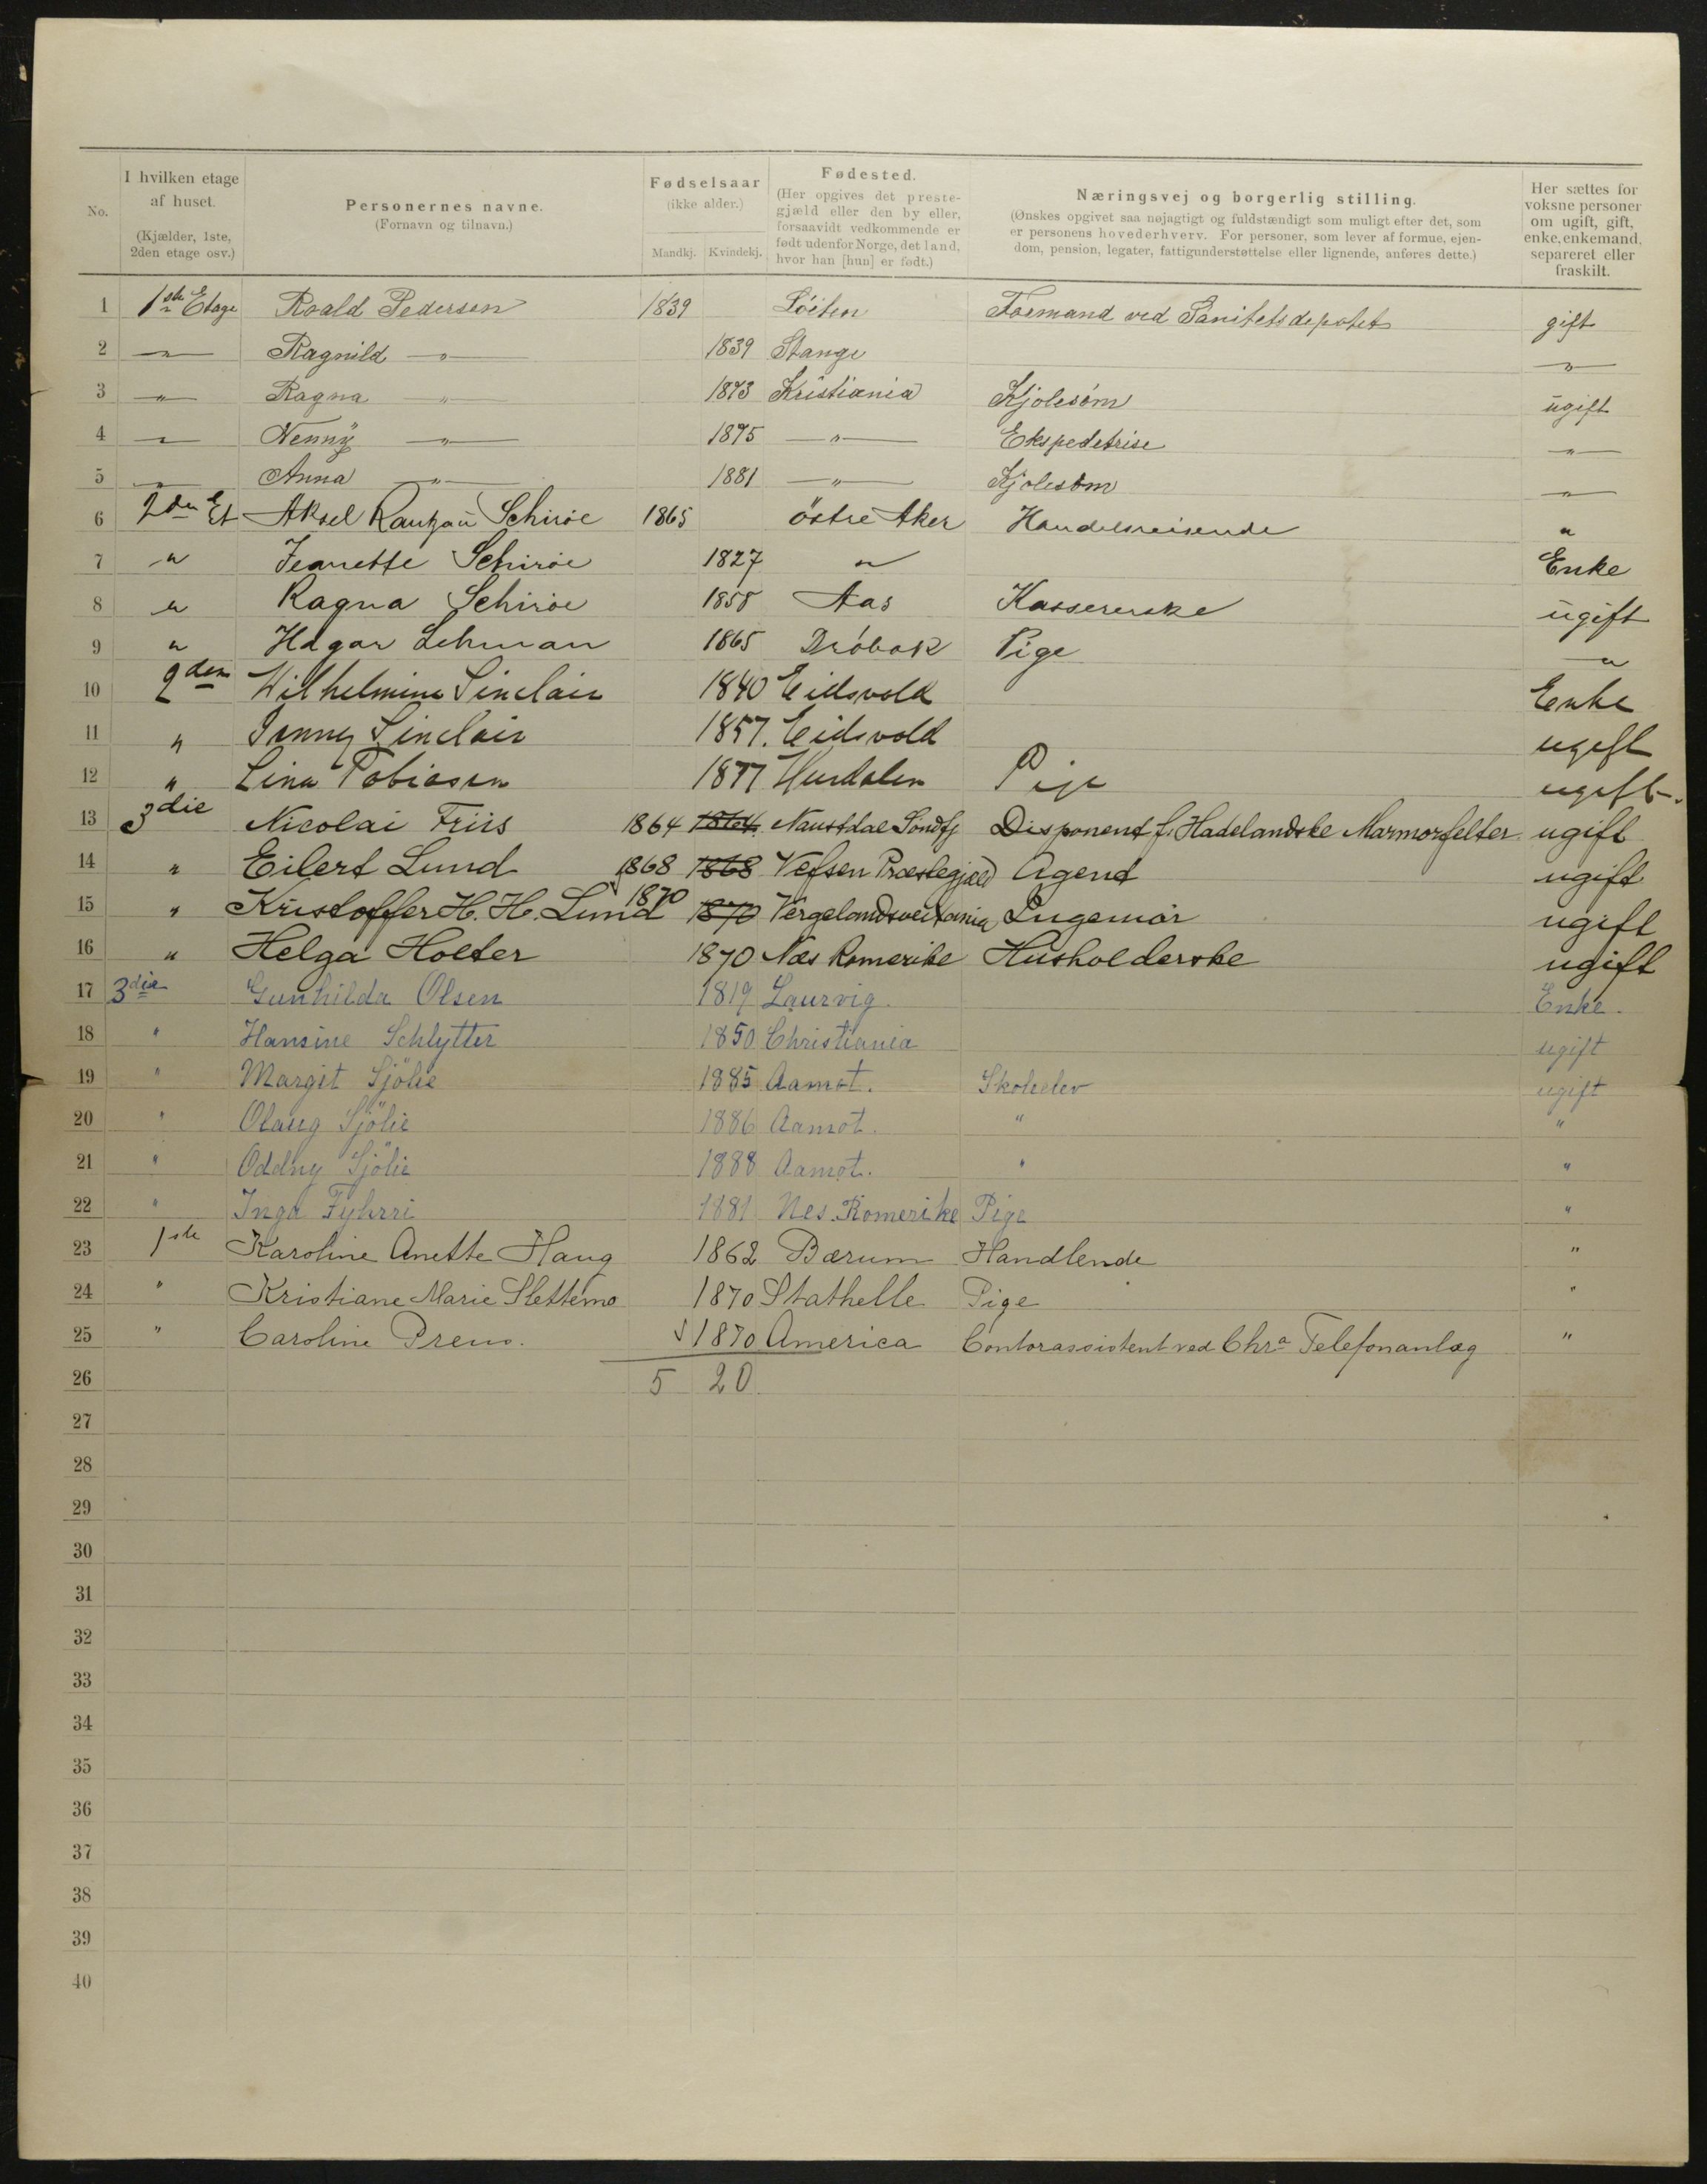 No.
I hvilken etage af huset. (Kjælder, 1ste, 2den etage osv.)
Personernes navne. (Fornavn og tilnavn.)
Fødselsaar (ikke alder.) Mandkj. Kvindekj.
Fødested. (Her opgives det prestegjæld eller den by eller, forsaavidt vedkommende er født udenfor Norge, det land, hvor han [hun] er født.)
Næringsvej og borgerlig stilling. (Ønskes opgivet saa nøjagtigt og fuldstændigt som muligt efter det, som er personens hovederhverv. For personer, som lever af formue, ejendom, pension, legater, fattigunderstøttelse eller lignende, anføres dette.)
Her sættes for voksne personer om ugift, gift, enke, enkemand, separeret eller fraskilt.
1 1ste Etage Roald Pedersen 1839 Löiten Formand ved Sanitetsdepotet gift
2 " Ragnild " 1839 Stange "
3 " Ragna " 1873 Kristiania Kjolesöm ugift
4 " Nenny " 1875 " Ekspedetrise "
5 " Anna " 1881 " Kjolesöm "
6 2den Et Aksel Rantzau Schiröe 1865 östre Aker Handelsreisende "
7 " Jeanette Schiröe 1827 " Enke
8 " Ragna Schiröe 1858 Aas Kassererske ugift
9 " Hagar Lehman 1865 Dröbak Pige "
10 2den Wilhelmine Sinclair 1840 Eidsvold Enke
11 " Jenny Sinclair 1857. Eidsvold ugift
12 " Lina Tobiasen 1877 Hurdalen Pige ugift.
13 3die Nicolai Friis 1864 1864. Naustdal Söndfj Disponent f. Hadelandske Marmorfelter ugift
14 " Eilert Lund 1868 1868 Vefsen Præstegjæld Agend ugift
15 " Kristoffer H. H. Lund 1870 1870 Ingeniör ugift
16 " Helga Holter 1870 Næs Romerike Husholderske ugift
17 3die Gunhilda Olsen 1819 Laurvig. Enke.
18 " Hansine Schlytter 1850 Christiania ugift
19 " Margit Sjölie 1885 Aamot. Skoleelev ugift
20 " Olaug Sjölie 1886 Aamot. " "
21 " Oddny Sjölie 1888 Aamot. " "
22 " Inga Fyhrri 1881 Nes. Romerike Pige "
23 1ste Karoline Anette Haug 1862 Bærum Handlende "
24 " Kristiane Marie Slettemo 1870 Stathelle Pige "
25 " Caroline Preus. 1870 America Contorassistent ved Chra Telefonanlæg "
26 5 20
27
28
29
30
31
32
33
34
35
36
37
38
39
40